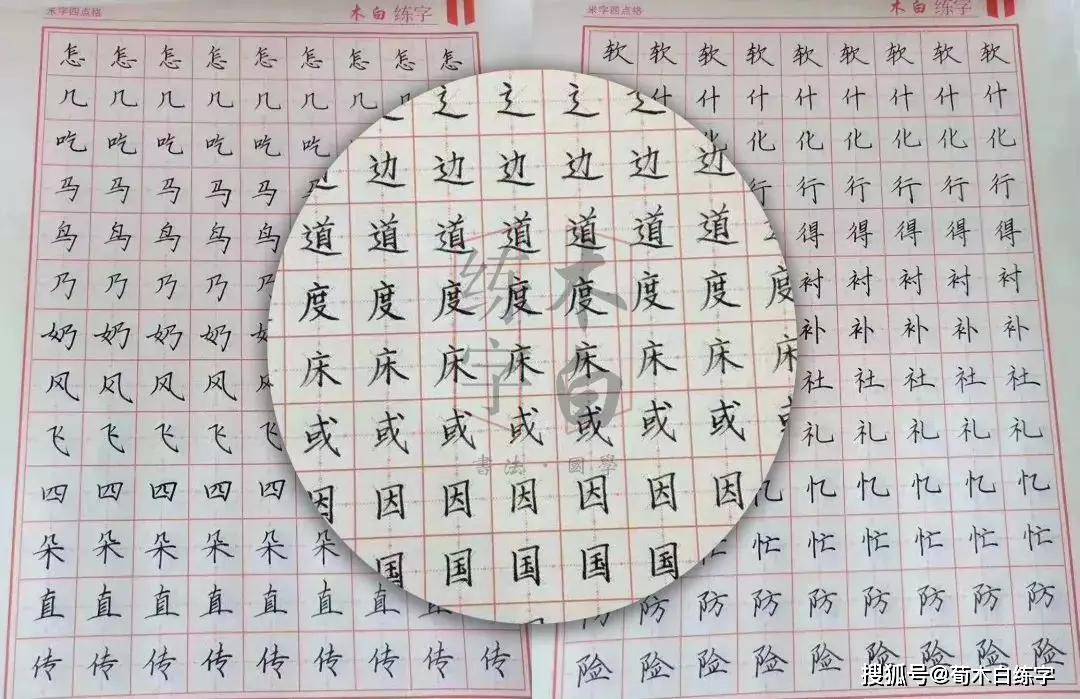 米字四点格 木白练字
怎怎怎怎怎怎怎怎怎
几几几几几几几
吃吃吃吃吃吃
马马马马马
鸟鸟鸟鸟鸟
乃乃乃乃乃
奶奶奶奶
风风风风
飞飞飞飞
四四四四四
朵朵朵朵朵朵
直直直直直直直
传传传传传传传传传
辶辶辶
边边边边边边
道道道道道道道
度度度度度度度度
床床床床床床床
或或或或或或或
因因因因因因
国国国国国
木白练字
書法·國學
米字四点格 木白练字
软软软软软软软软软
什什什什什什什什
化化化化化化
行行行行行
得得得得得
衬衬衬衬衬
补补补补补
社社社社社
礼礼礼礼礼
忆忆忆忆忆
忙忙忙忙忙忙
防防防防防防防防
险险险险险险险险险
搜狐号@荀木白练字